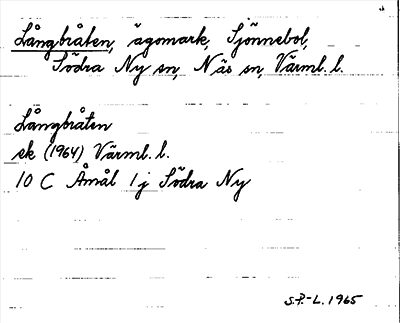 Långbråten, ägomark, Sjönnebol,
Södra Ny sn, Näs sn, Värml. l.
Långbråten
ek (1964) Värml. l.
10 C Åmål 1j Södra Ny
S.P.-L. 1965